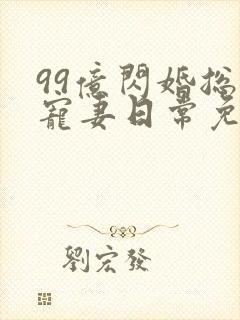 99億閃婚總
寵妻日常免
劉宏發